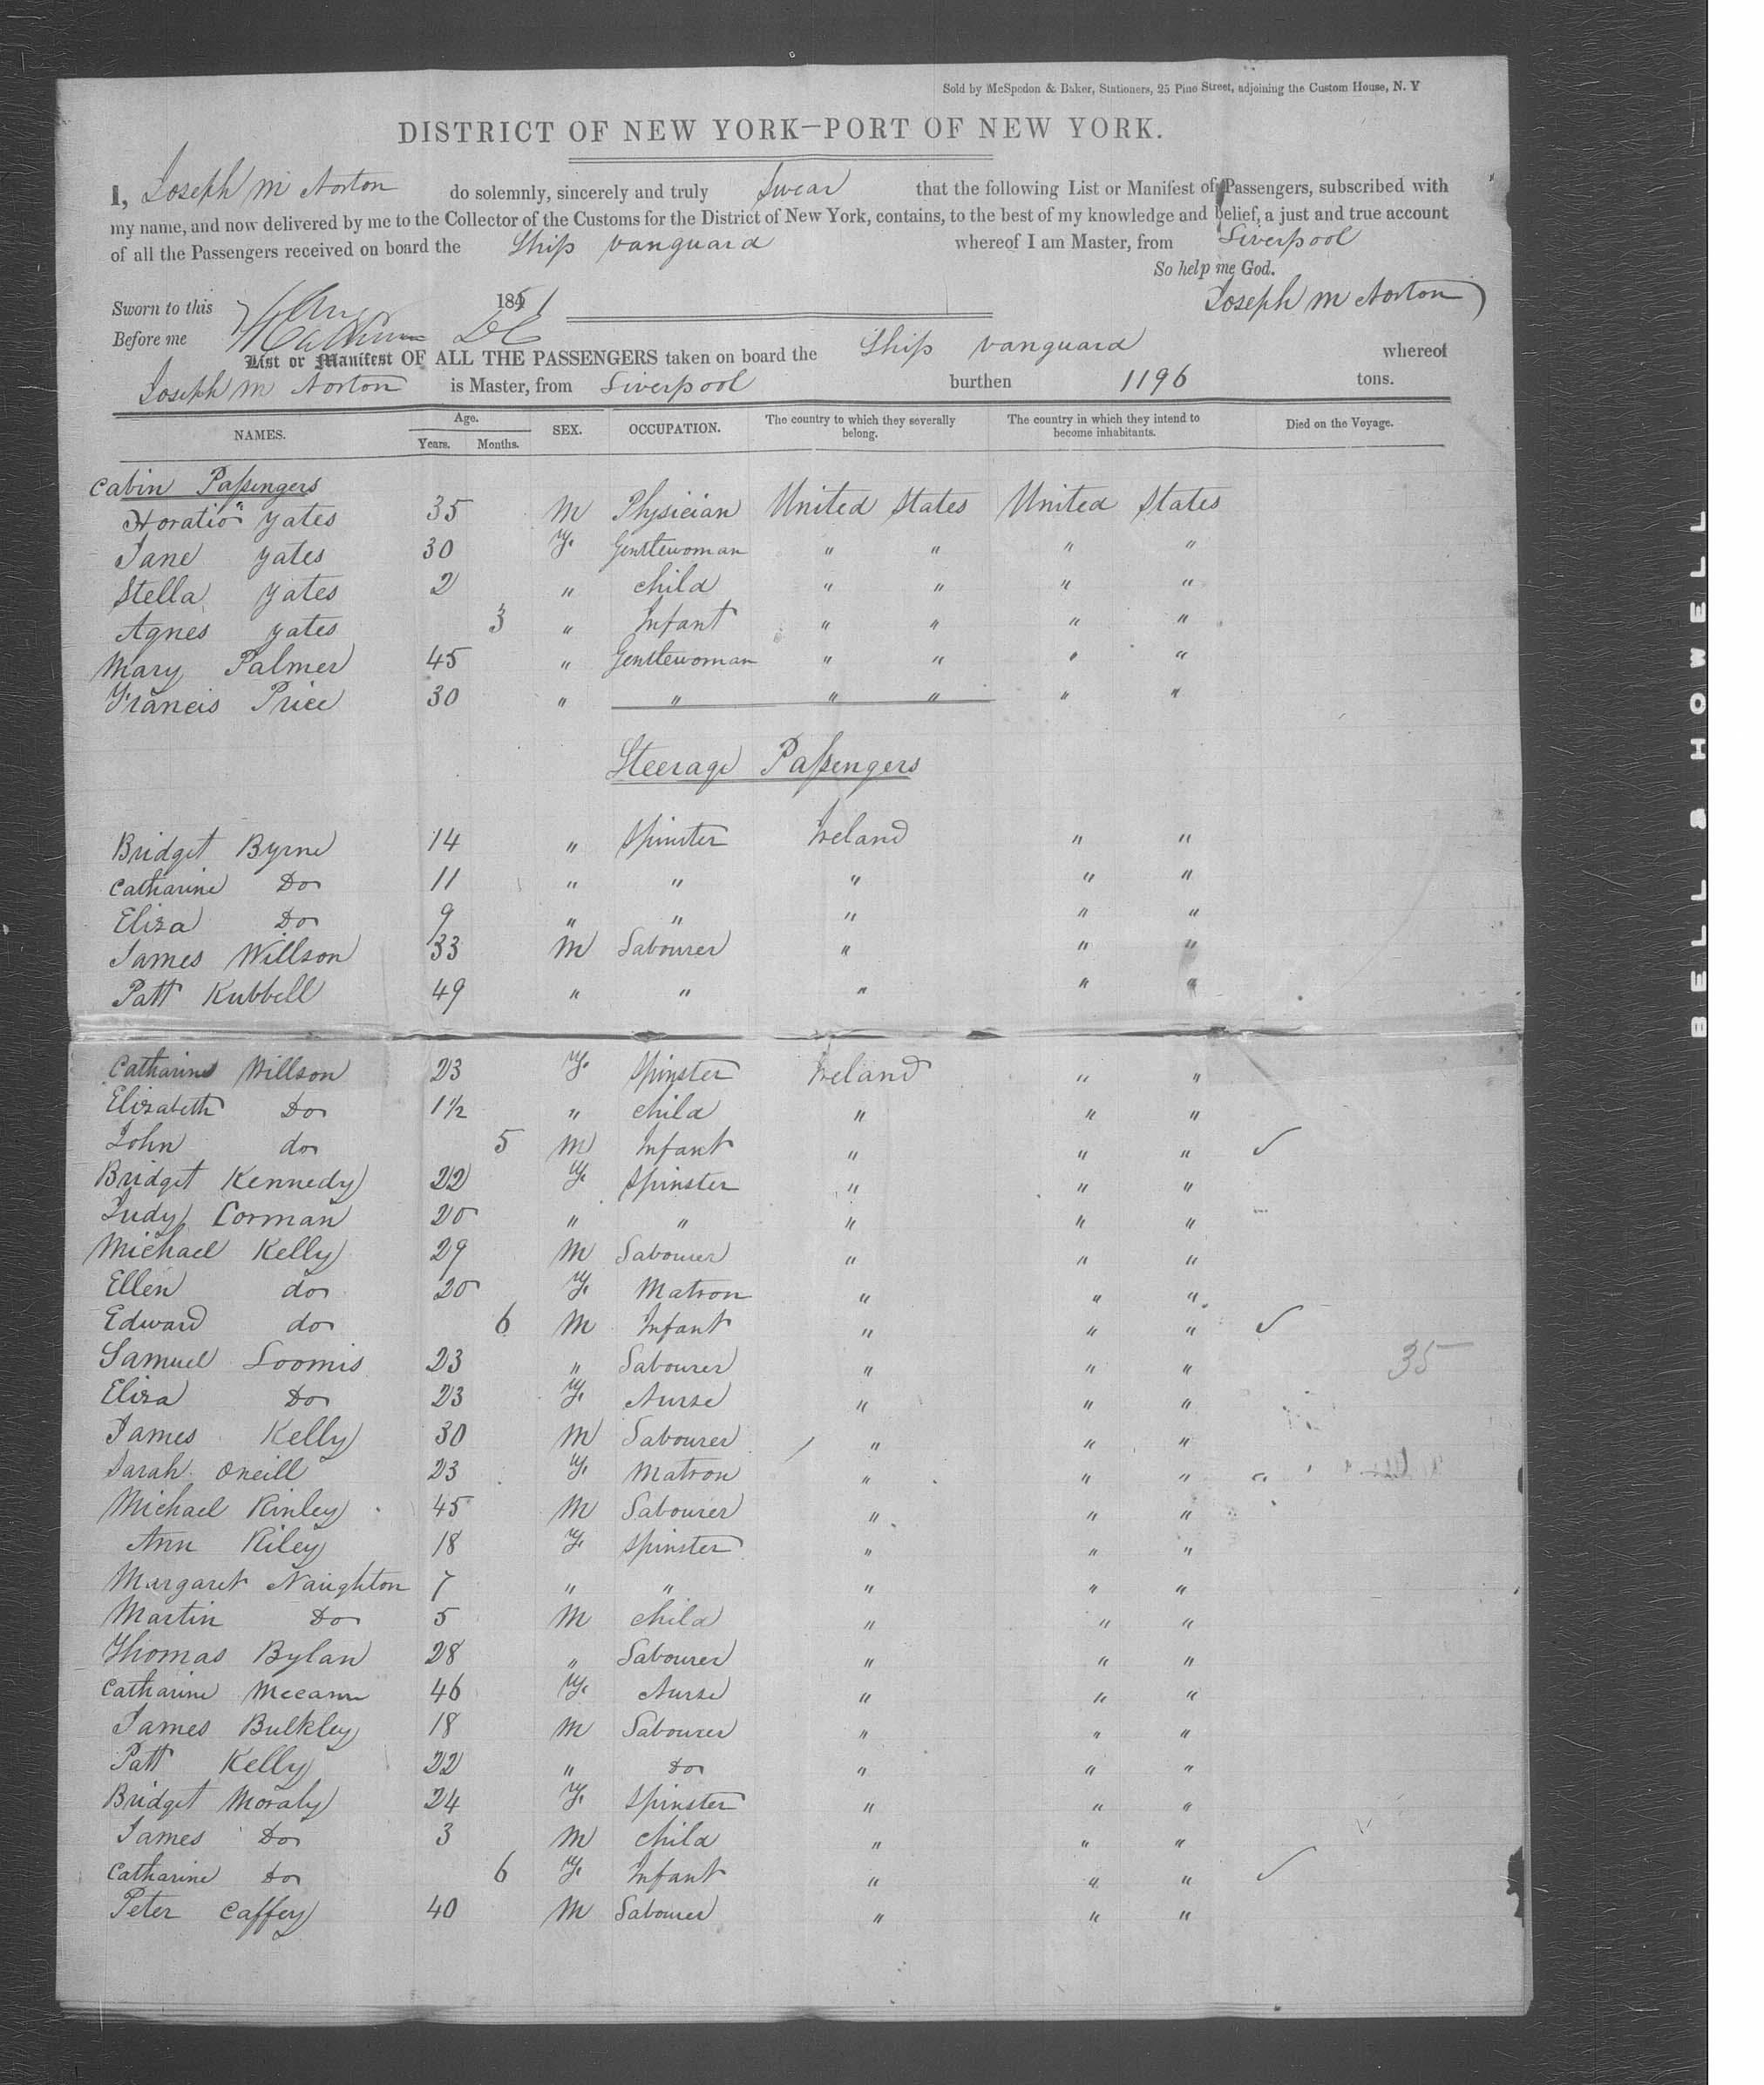 Sold by McSpedon & Baker, Stationers, 25 Pine Street, adjoining the Custom House, N. Y
DISTRICT OF NEW YORK—PORT OF NEW YORK.
I, Joseph M Norton do solemnly, sincerely and truly Swear that the following List or Manifest of Passengers, subscribed with
my name, and now delivered by me to the Collector of the Customs for the District of New York, contains, to the best of my knowledge and belief, a just and true account
of all the Passengers received on board the Ship Vanguard whereof I am Master, from Liverpool
So help me God.
Sworn to this 1851 Joseph M Norton
Before me
List or Manifest OF ALL THE PASSENGERS taken on board the Ship Vanguard whereof
Joseph M Norton is Master, from Liverpool burthen 1196 tons.
NAMES. Age. Years. Months. SEX. OCCUPATION. The country to which they severally belong. The country in which they intend to become inhabitants. Died on the Voyage.
Cabin Passengers
Horatio Yates 35 M Physician United States United States
Jane Yates 30 F. Gentlewoman " " " "
Stella Yates 2 " child " " " "
Agnes Yates 3 " Infant " " " "
Mary Palmer 45 " Gentlewoman " " " "
Francis Price 30 " " " " " "
Steerage Passengers
Bridget Byrne 14 " Spinster Ireland " "
Catharine Do 11 " " " " "
Eliza Do 9 " " " " "
James Willson 33 M Labourer " " "
Patt Kubbell 49 " " " " "
Catharine Willson 23 F. Spinster Ireland " "
Elizabeth Do 1½ " child " " "
John do 5 M Infant " " " ✓
Bridget Kennedy 22 F. Spinster " " "
Judy Corman 20 " " " " "
Michael Kelly 29 M Labourer " " "
Ellen do 20 F. Matron " " "
Edward do 6 M Infant " " " ✓
Samuel Loomis 23 " Labourer " " " 35
Eliza Do 23 F. Nurse " " "
James Kelly 30 M Labourer " " "
Sarah Oneill 23 F. Matron " " "
Michael Kinley 45 M Labourer " " "
Ann Riley 18 F. Spinster " " "
Margaret Naughton 7 " " " " "
Martin Do 5 M child " " "
Thomas Bylan 28 " Labourer " " "
Catharine Mccann 46 F. Nurse " " "
James Bulkley 18 M Labourer " " "
Patt Kelly 22 " Do " " "
Bridget Moraly 24 F. Spinster " " "
James Do 3 M child " " "
Catharine Do 6 F. Infant " " " ✓
Peter Caffey 40 M Labourer " " "
BELL & HOWELL